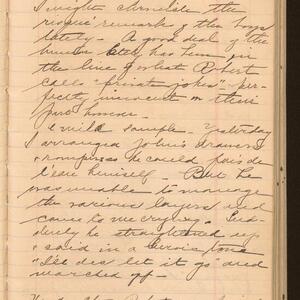 I might chronicle the
risqué remarks of the boys
lately. A good deal of the
has been in
the line of what Robert
calls "private jokes" per-
fectly innocent in their
pure humor.
A mild sample. Yesterday
I arranged John's drawers
+ rompers so he could
himself. But he
was unable to manage
the various layers and
came to me crying. Sud-
denly he straightened up
+ said in a heroic tone
"I'll des let it go" and
marched off.